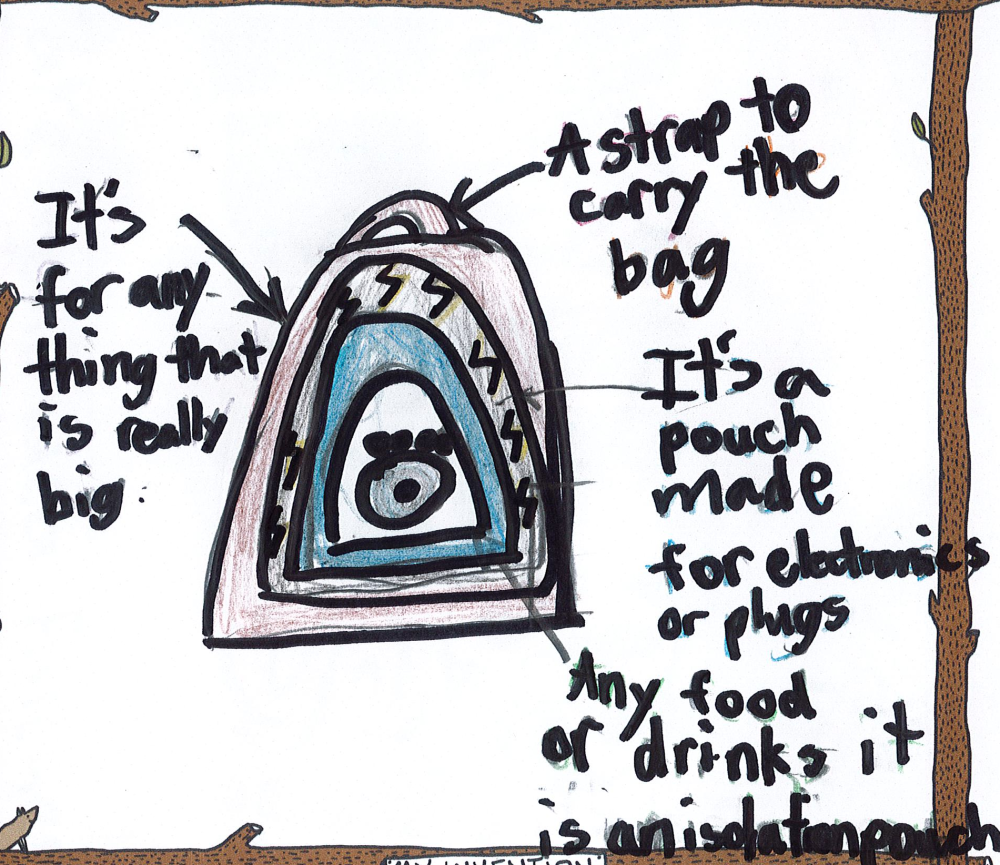 A strap to
carry the
bag
It's
for any
thing that
is really
big.
It's a
pouch
made
for electronics
or plugs
Any food
or drinks it
is an isolation pouch
"MY INVENTION"